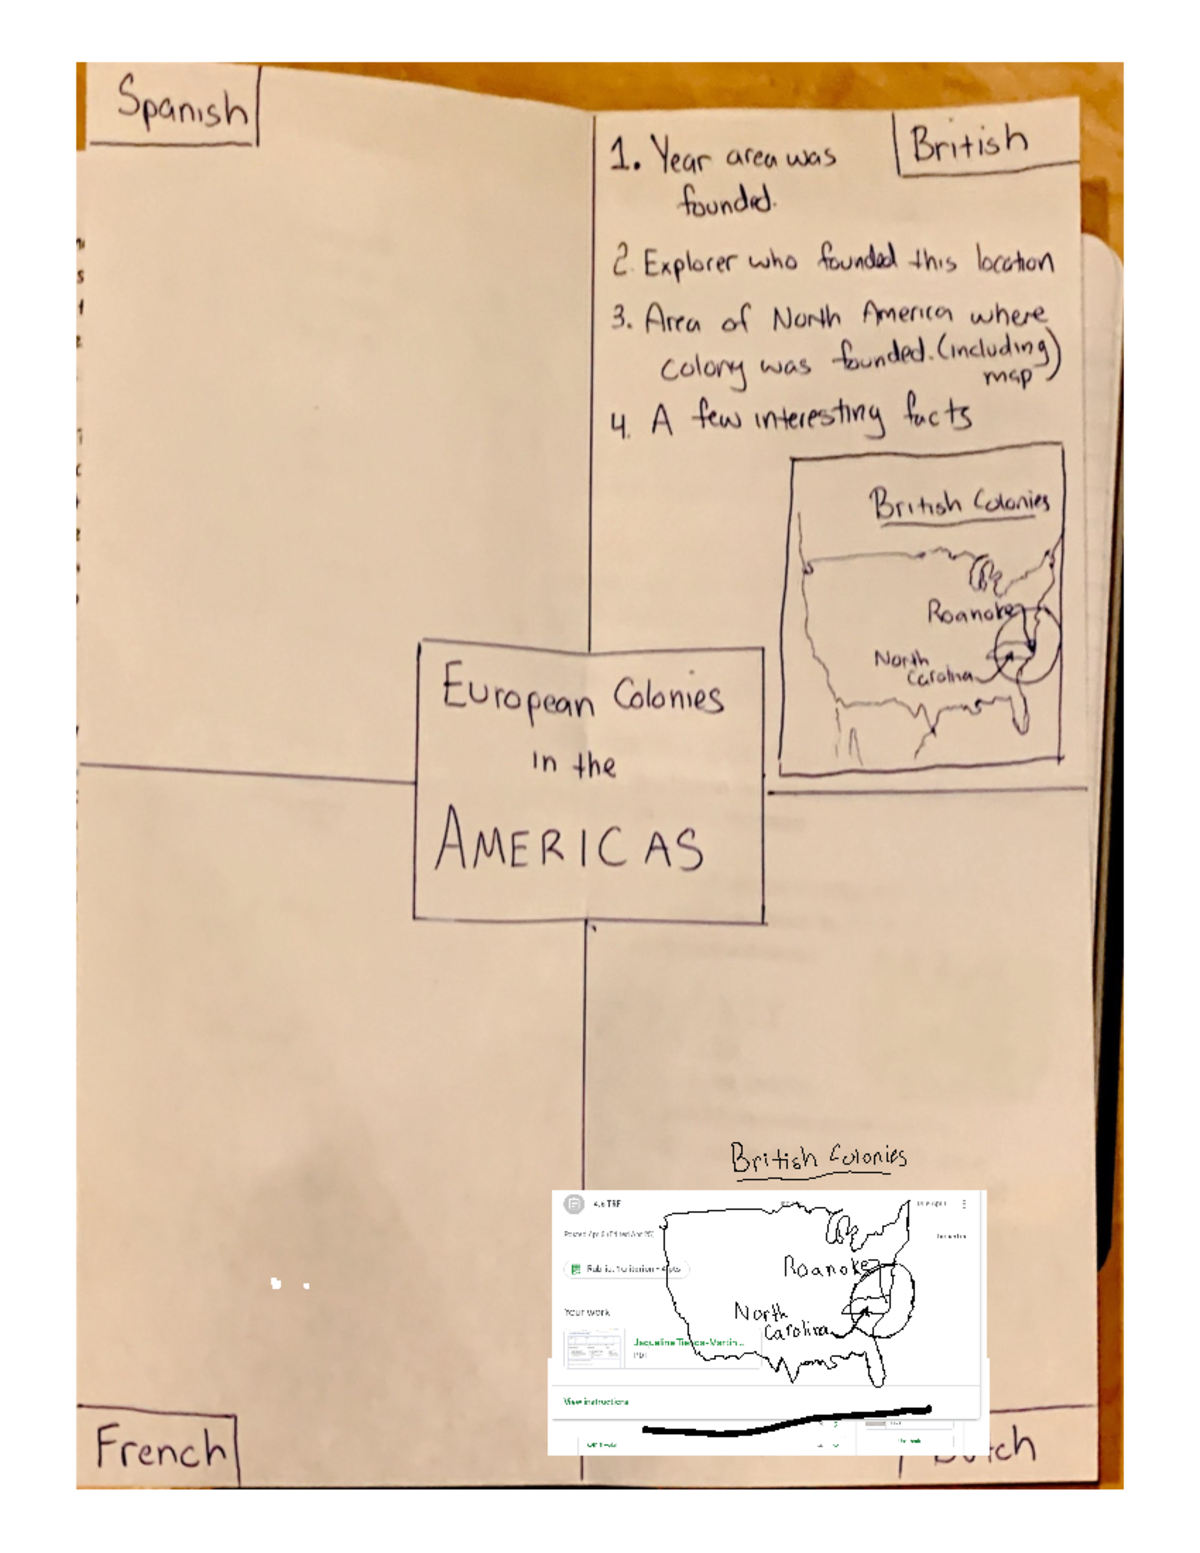 Spanish
British
1. Year area was
founded.
2. Explorer who founded this location
3. Area of North America where
colony was founded. (including
map)
4. A few interesting facts
British Colonies
Roanoke
North
Carolina
European Colonies
in the
AMERICAS
British Colonies
4.6 TRF
Roanoke
Your work
North
Carolina
PDF
View instructions
French